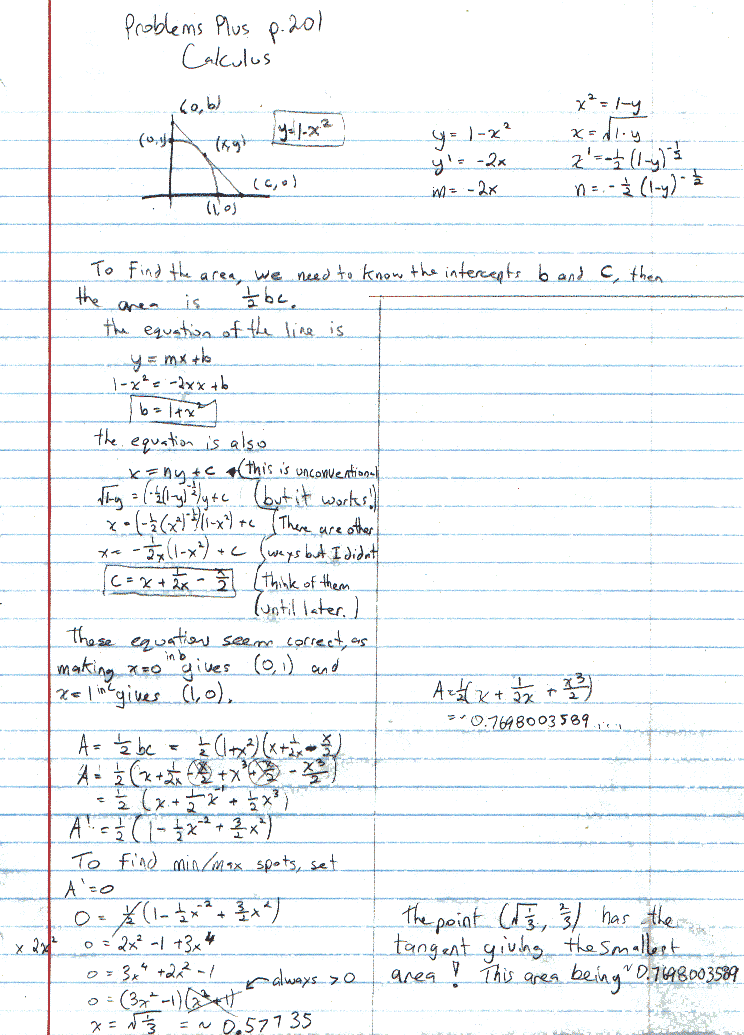 Problems Plus p.201
Calculus
(0,b)
(0,y)
(x,y)
(c,0)
(1,0)
y=1-x²
y = 1-x²
y' = -2x
m = -2x
x² = 1-y
x = √1-y
z' = -½ (1-y)^-½
n = -½ (1-y)^-½
To find the area, we need to know the intercepts b and c, then
the area is ½bc.
the equation of the line is
y = mx+b
1-x² = -2xx+b
b = 1+x²
the equation is also
x = ny + c ← (this is unconventional
√1-y = (-½(1-y)^-½)y+c (but it works!)
x = (-½(x²)^-½)(1-x²) + c (There are other
x = -1/2x (1-x²) + c (ways but I didnt
c = x + 1/2x - x/2 (think of them
(until later.)
These equations seem correct, as
making x=0 in b gives (0,1) and
x=1 in c gives (1,0).
A = ½bc = ½(1+x²)(x+1/2x - x/2)
A = ½(x+1/2x - x/2 + x³ + x/2 - x³/2)
= ½ (x + ½x^-1 + ½x³)
A' = ½(1 - ½x^-2 + 3/2 x²)
To find min/max spots, set
A'=0
0 = ½(1 - ½x^-2 + 3/2 x²)
x 2x² 0 = 2x² - 1 + 3x⁴
0 = 3x⁴ + 2x² - 1
0 = (3x²-1)(x²+1) ← always > 0
x = √⅓ = ~ 0.57735
A = ½(x + 1/2x + x³/2)
= ~ 0.7698003589...
The point (√⅓, ⅔) has the
tangent giving the smallest
area! This area being ~0.7698003589